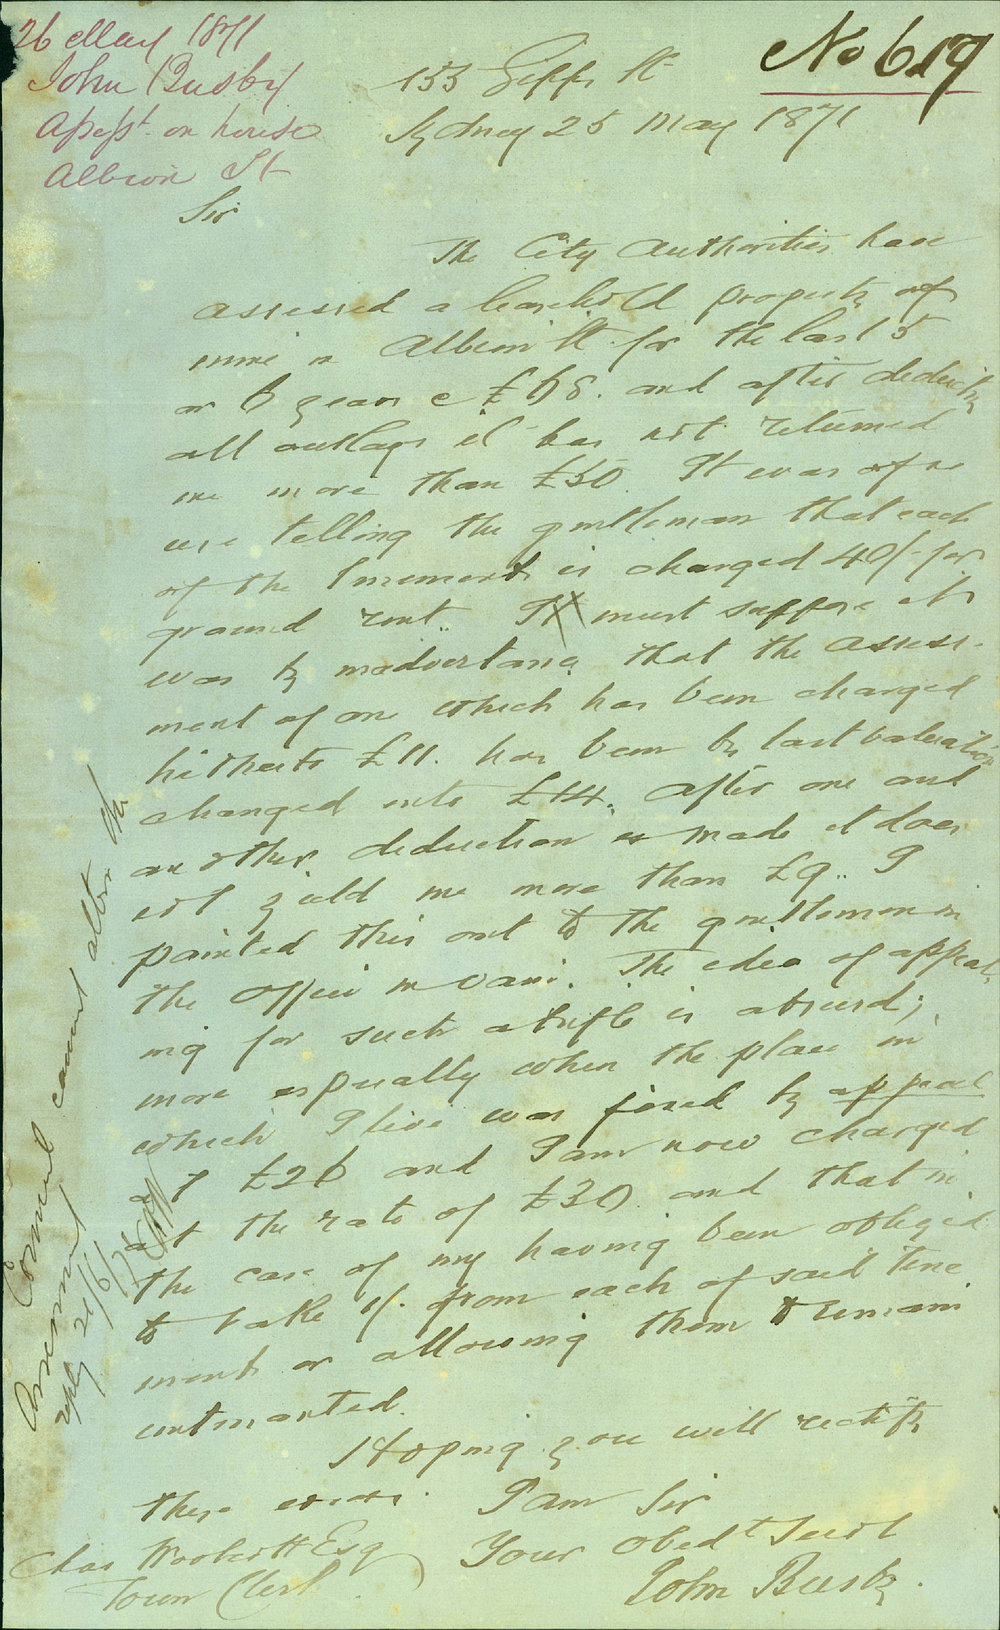 26 May 1871
John Busby
Assesst. on house
Albion St
No 619
153 Gipps St
Sydney 25 May 1871
Sir
The City Authorities have
assessed a leasehold property of
mine in Albion St. for the last 5
or 6 years @ £68. and after deducting
all outlays it has not returned
me more than £50. It was of no
use telling the gentleman that each
of the tenements is charged 40/- for
ground rent. I must suppose it
was by inadvertance that the assess-
ment of one which has been charged
hitherto £11. has been by last valuation
changed into £14. After one and
another deduction is made it does
not yield me more than £9.. I
pointed this out to the gentleman in
the office in vain. The idea of appeal-
ing for such a trifle is absurd;
more especially when the place in
which I live was fixed by appeal
at £26 and I am now charged
at the rate of £30 and that in
the case of my having been obliged
to take 1/. from each of said tene
ments or allowing them to remain
untenanted.
Hoping you will rectify
these errors. I am Sir
Your obedt Servt
John Busby.
Chas Woolcott Esq
Town Clerk
Council cannot alter the
Assessment
reply 21/6/71